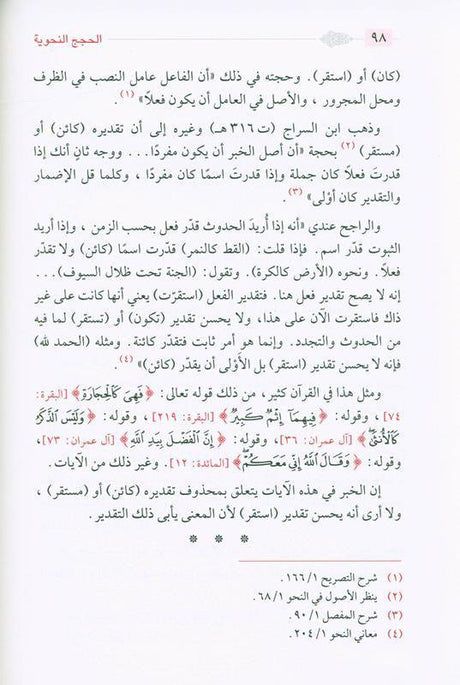 ٩٨
الحجج النحوية
(كان) أو (استقر). وحجته في ذلك «أن الفاعل عامل النصب في الظرف
ومحل المجرور ، والأصل في العامل أن يكون فعلاً» (١) .
وذهب ابن السراج (ت ٣١٦ هـ) وغيره إلى أن تقديره (كائن) أو
(مستقر) (٢) بحجة «أن أصل الخبر أن يكون مفردًا... ووجه ثانٍ أنك إذا
قدرتَ فعلًا كان جملة وإذا قدرتَ اسمًا كان مفردًا ، وكلما قل الإضمار
والتقدير كان أولى» (٣) .
والراجح عندي «أنه إذا أُريدَ الحدوث قدّر فعل بحسب الزمن ، وإذا أريد
الثبوت قدّر اسم. فإذا قلت: (القط كالنمر) قدّرت اسمًا (كائن) ولا تقدّر
فعلًا. ونحوه (الأرض كالكرة). وتقول: (الجنة تحت ظلال السيوف)...
إنه لا يصح تقدير فعل هنا. فتقدير الفعل (استقرّت) يعني أنها كانت على غير
ذاك فاستقرت الآن على هذا، ولا يحسن تقدير (تكون) أو (تستقر) لما فيه
من الحدوث والتجدد. وإنما هو أمر ثابت فتقدّر كائنة. ومثله (الحمد لله)
فإنه لا يحسن تقدير (استقر) بل الأَولى أن يقدّر (كائن)» (٤) .
ومثل هذا في القرآن كثير، من ذلك قوله تعالى: ﴿فَهِيَ كَالْحِجَارَةِ﴾ [البقرة:
٧٤] ، وقوله: ﴿فِيهِمَا إِثْمٌ كَبِيرٌ﴾ [البقرة: ٢١٩] ، وقوله: ﴿وَلَيْسَ الذَّكَرُ
كَالْأُنثَىٰ﴾ [آل عمران: ٣٦]، وقوله: ﴿إِنَّ الْفَضْلَ بِيَدِ اللَّهِ﴾ [آل عمران: ٧٣]،
وقوله: ﴿وَقَالَ اللَّهُ إِنِّي مَعَكُمْ﴾ [المائدة: ١٢]. وغير ذلك من الآيات.
إن الخبر في هذه الآيات يتعلق بمحذوف تقديره (كائن) أو (مستقر) ،
ولا أرى أنه يحسن تقدير (استقر) لأن المعنى يأبى ذلك التقدير.
* * *
(١) شرح التصريح ١/ ١٦٦ .
(٢) ينظر الأصول في النحو ١/ ٦٨ .
(٣) شرح المفصل ١/ ٩٠ .
(٤) معاني النحو ١/ ٢٠٤ .